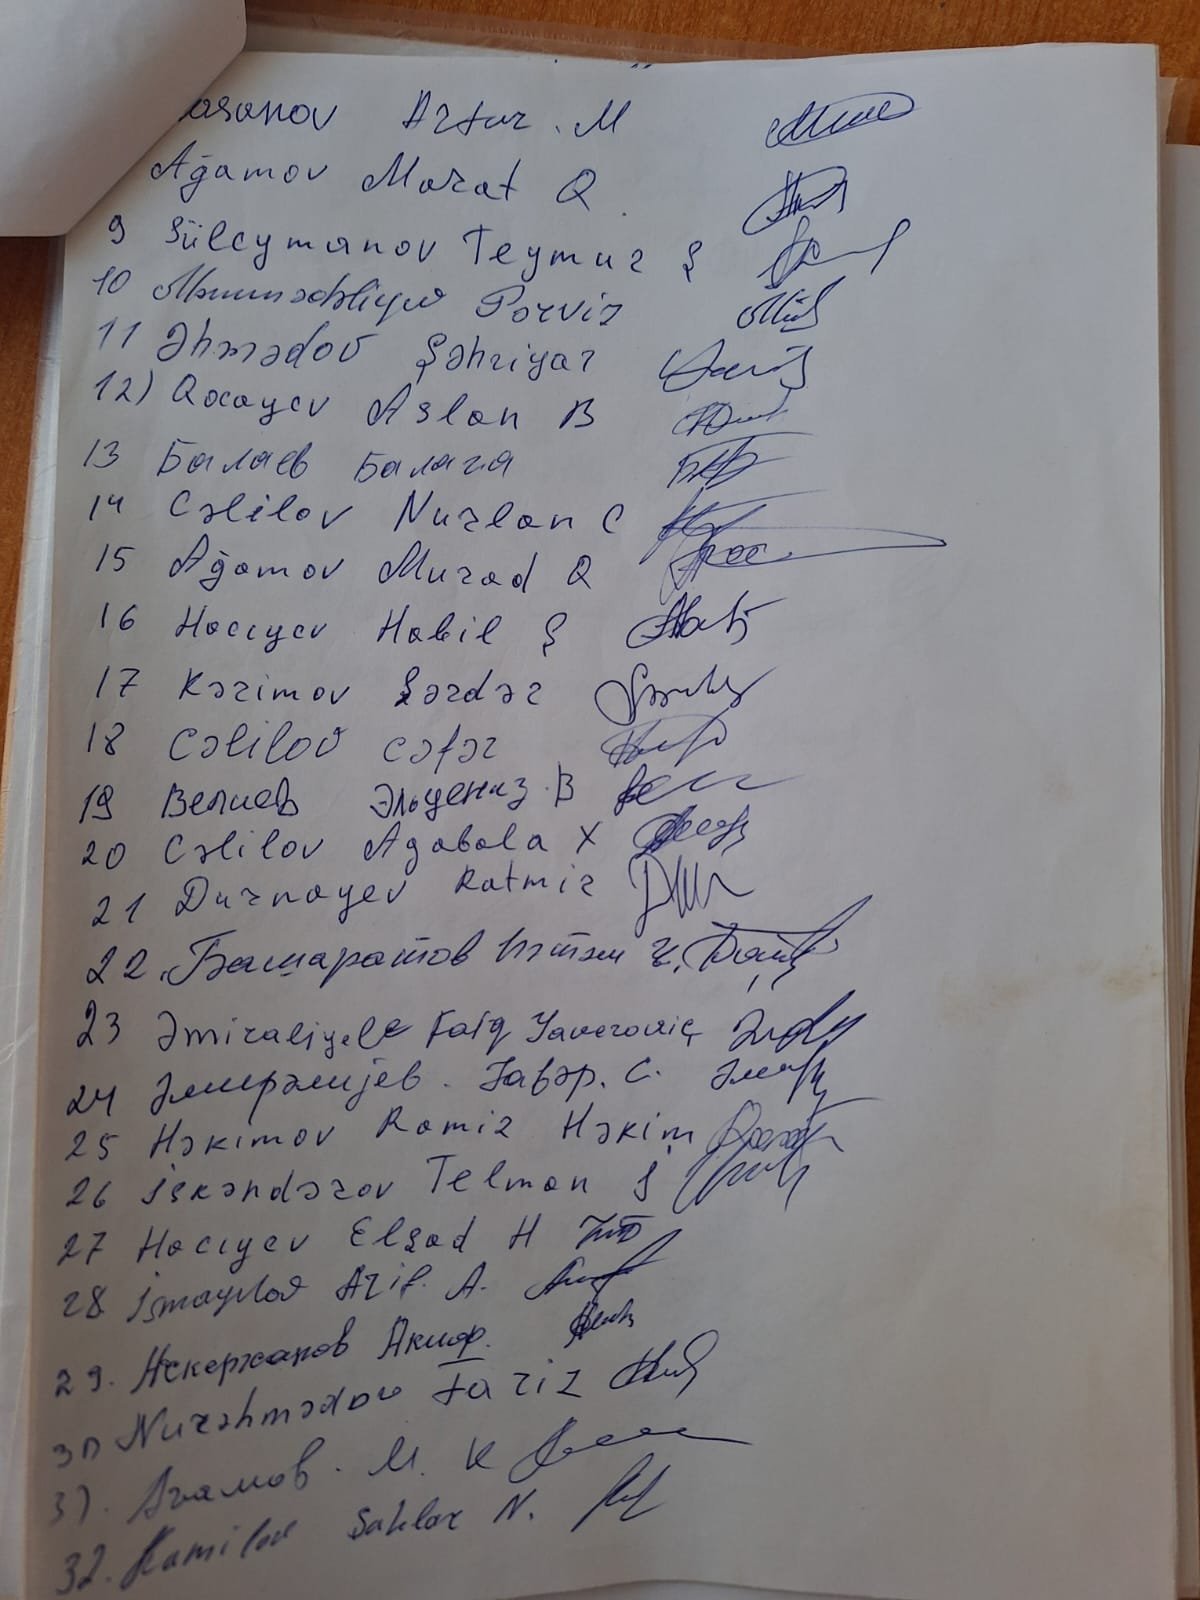 Artur. M
Ağamov Marat Q
9 Süleymanov Teymur Ş
10 Pərviz
11 Əhmədov Şəhriyar
12) Qocayev Aslan B
13 Балаев Балага
14 Cəlilov Nurlan C
15 Ağamov Murad Q
16 Hacıyev Habil Ş
17 Kərimov Sərdər
18 Cəlilov Cəfər
19 Велиев Эльдениз. В
20 Cəlilov Agabala X
21 Durnayev Ratmir
22. Башаратов
23 Faiq Yaveroviç
24 С.
25 Həkimov Ramiz Həkim
26 İskəndərov Telman Ş
27 Hacıyev Elşad H
28 İsmayılov Arif. A.
29. Акиф.
30 Nurəhmədov Fariz
31. Агамов. М. К
32. Kamilov N.